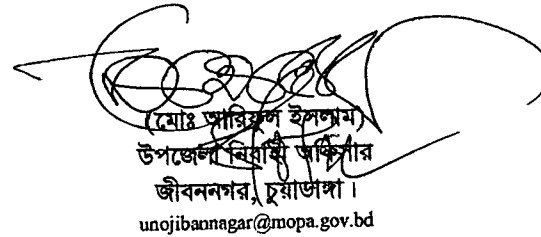 (মোঃ আরিফুল ইসলাম)
উপজেলা নির্বাহী অফিসার
জীবননগর, চুয়াডাঙ্গা।
unojibannagar@mopa.gov.bd